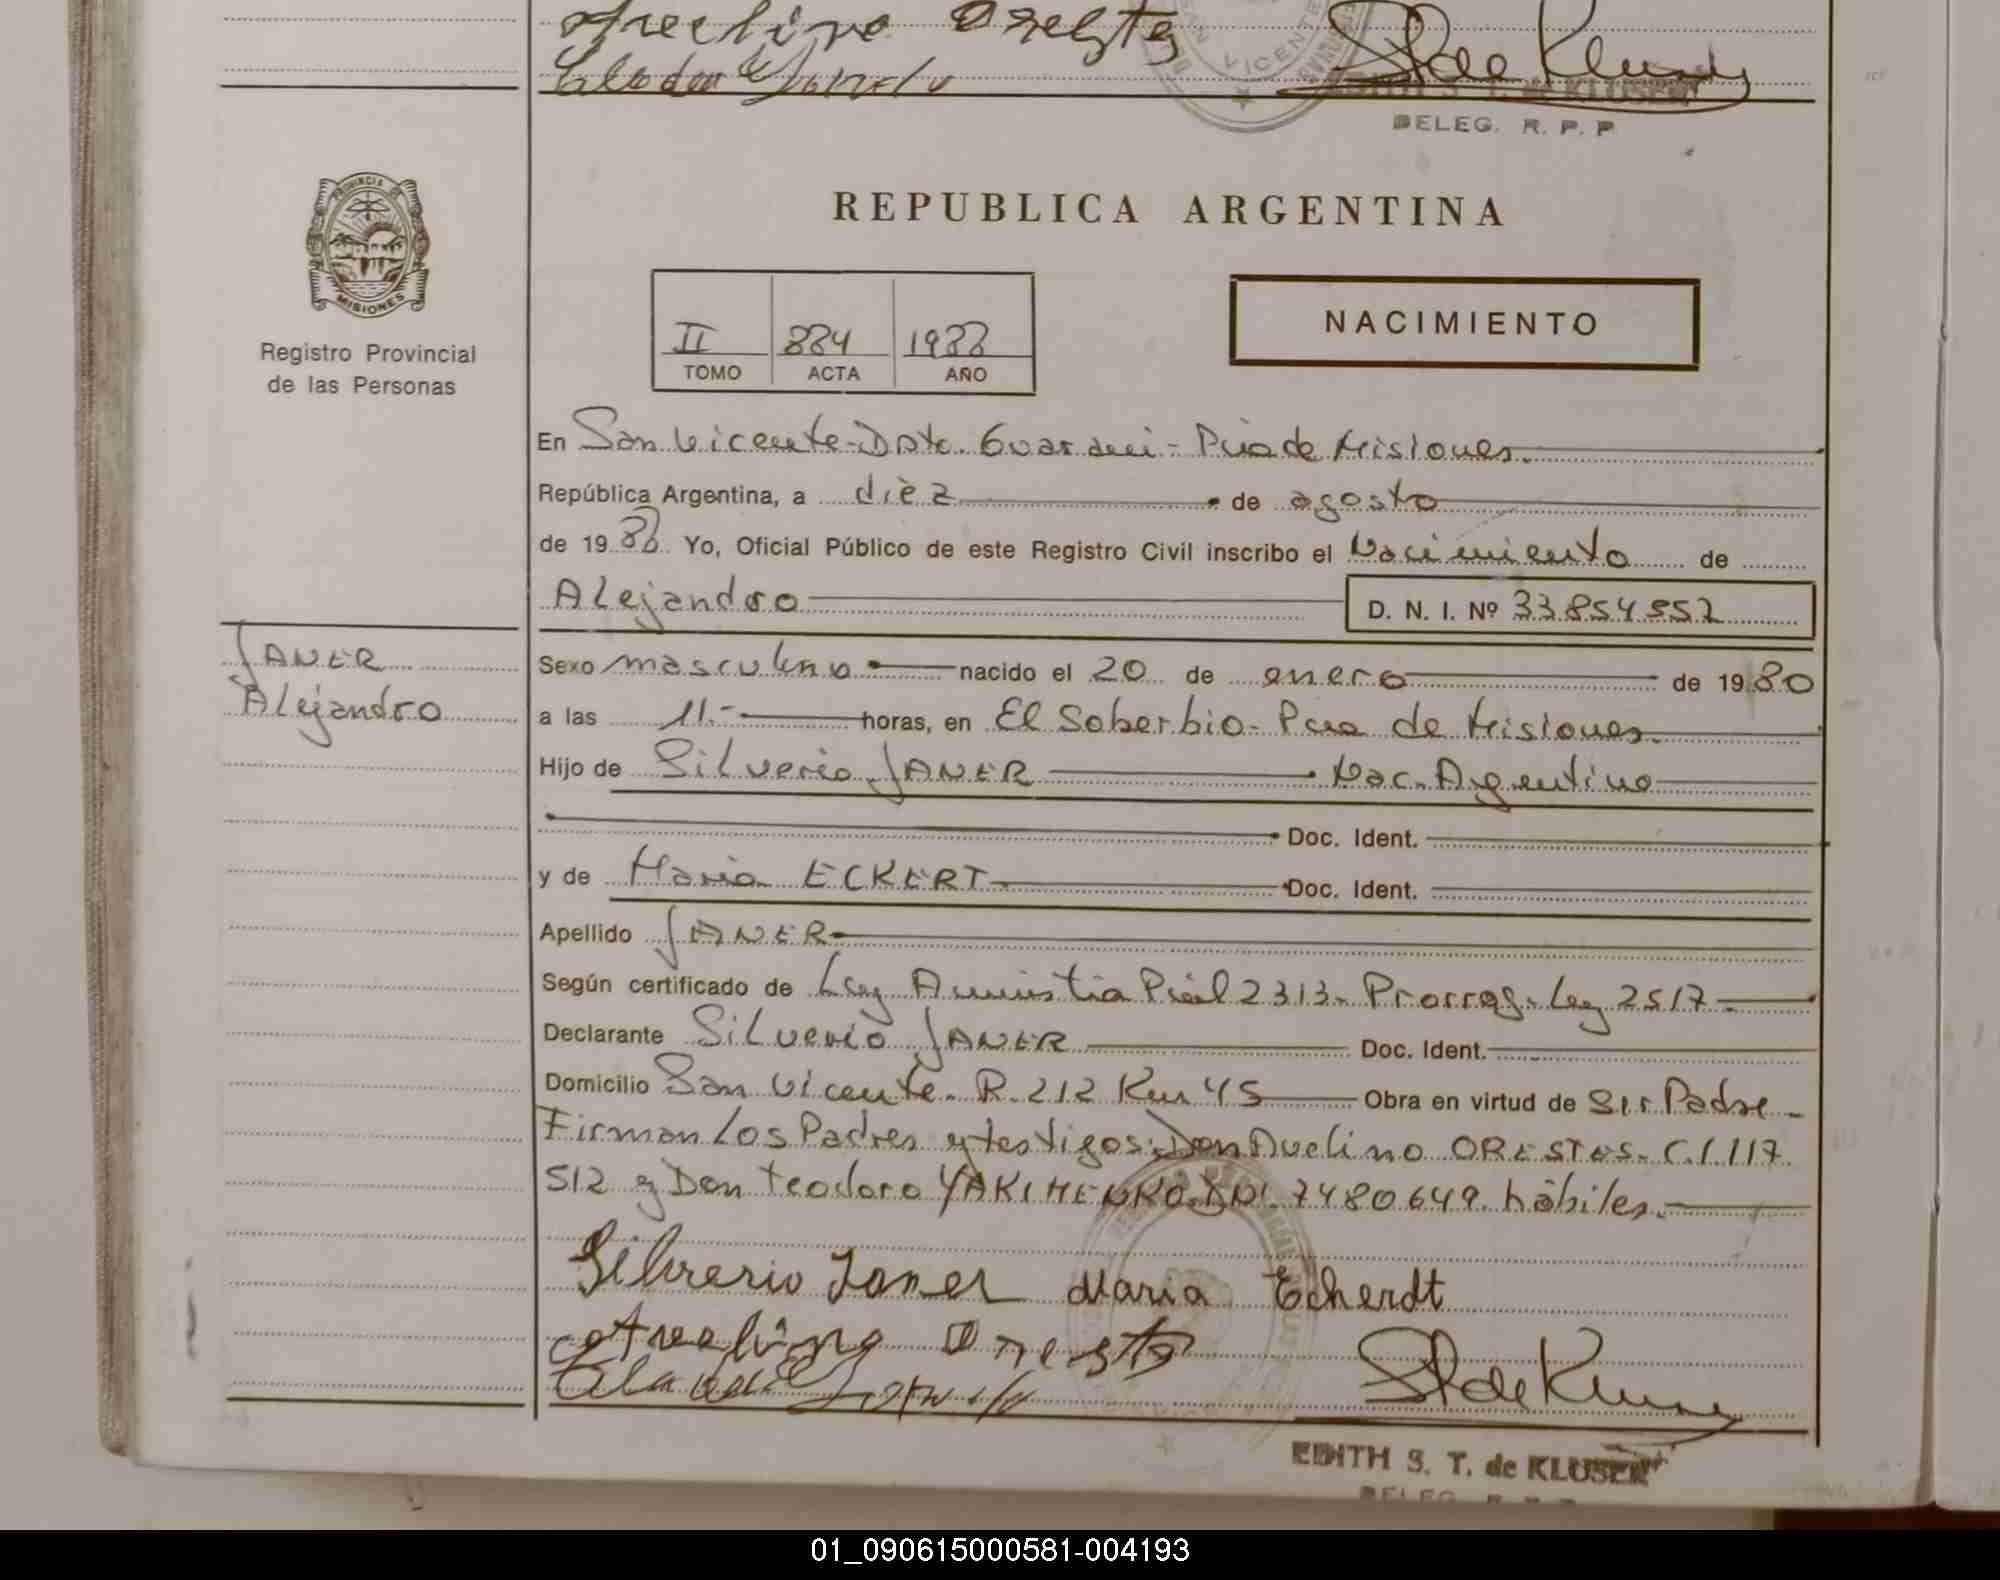 Orestes
VICENTE
EDITH S. T. de KLUSER
DELEG. R. P. P
PROVINCIA DE
MISIONES
Registro Provincial
de las Personas
REPUBLICA ARGENTINA
II 884 1988
TOMO ACTA AÑO
NACIMIENTO
En San Vicente - Dpto. Guarani - Pcia de Misiones.
República Argentina, a diez de agosto
de 1988 Yo, Oficial Público de este Registro Civil inscribo el Nacimiento de
Alejandro D. N. I. Nº 33.854.552
JANER
Alejandro
Sexo masculino nacido el 20 de enero de 1980
a las 11.- horas, en El Soberbio - Pcia de Misiones.
Hijo de Silverio JANER Nac. Argentino
Doc. Ident.
y de Maria ECKERT Doc. Ident.
Apellido JANER
Según certificado de Ley Amnistia Pcial 2313. Prorrog. Ley 2517
Declarante Silverio JANER Doc. Ident.
Domicilio San Vicente. R. 212 Km 45 Obra en virtud de ser Padre -
Firman los Padres y testigos: Don Avelino ORESTES. C.I. 117.
512 y Don Teodoro YAKIMENKO. DNI. 7480649. hàbiles.
Silverio Janer Maria Echerdt
Orestes
EDITH S. T. de KLUSER
DELEG. R. P. P
01_090615000581-004193